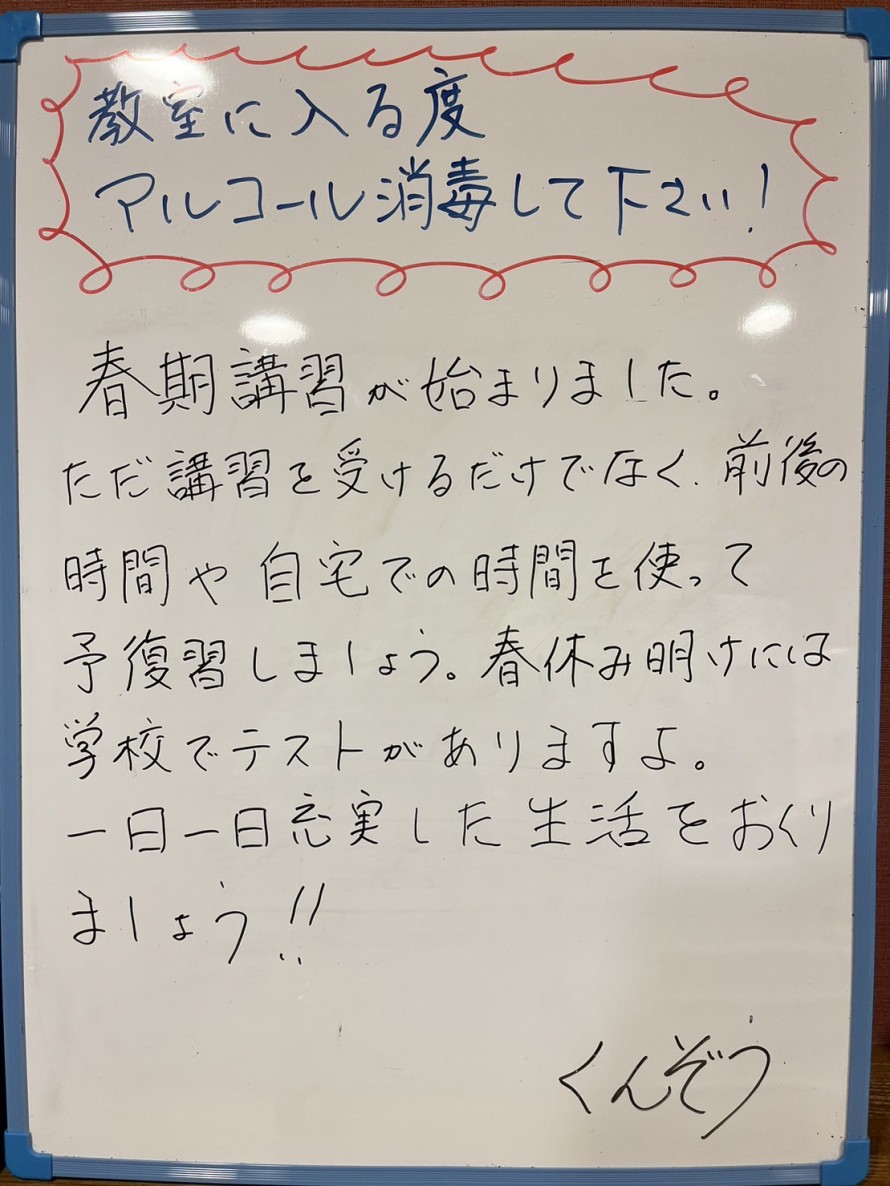 教室に入る度
アルコール消毒して下さい！
春期講習が始まりました。
ただ講習を受けるだけでなく、前後の
時間や自宅での時間を使って
予復習しましょう。春休み明けには
学校でテストがありますよ。
一日一日充実した生活をおくり
ましょう!!
くんぞう